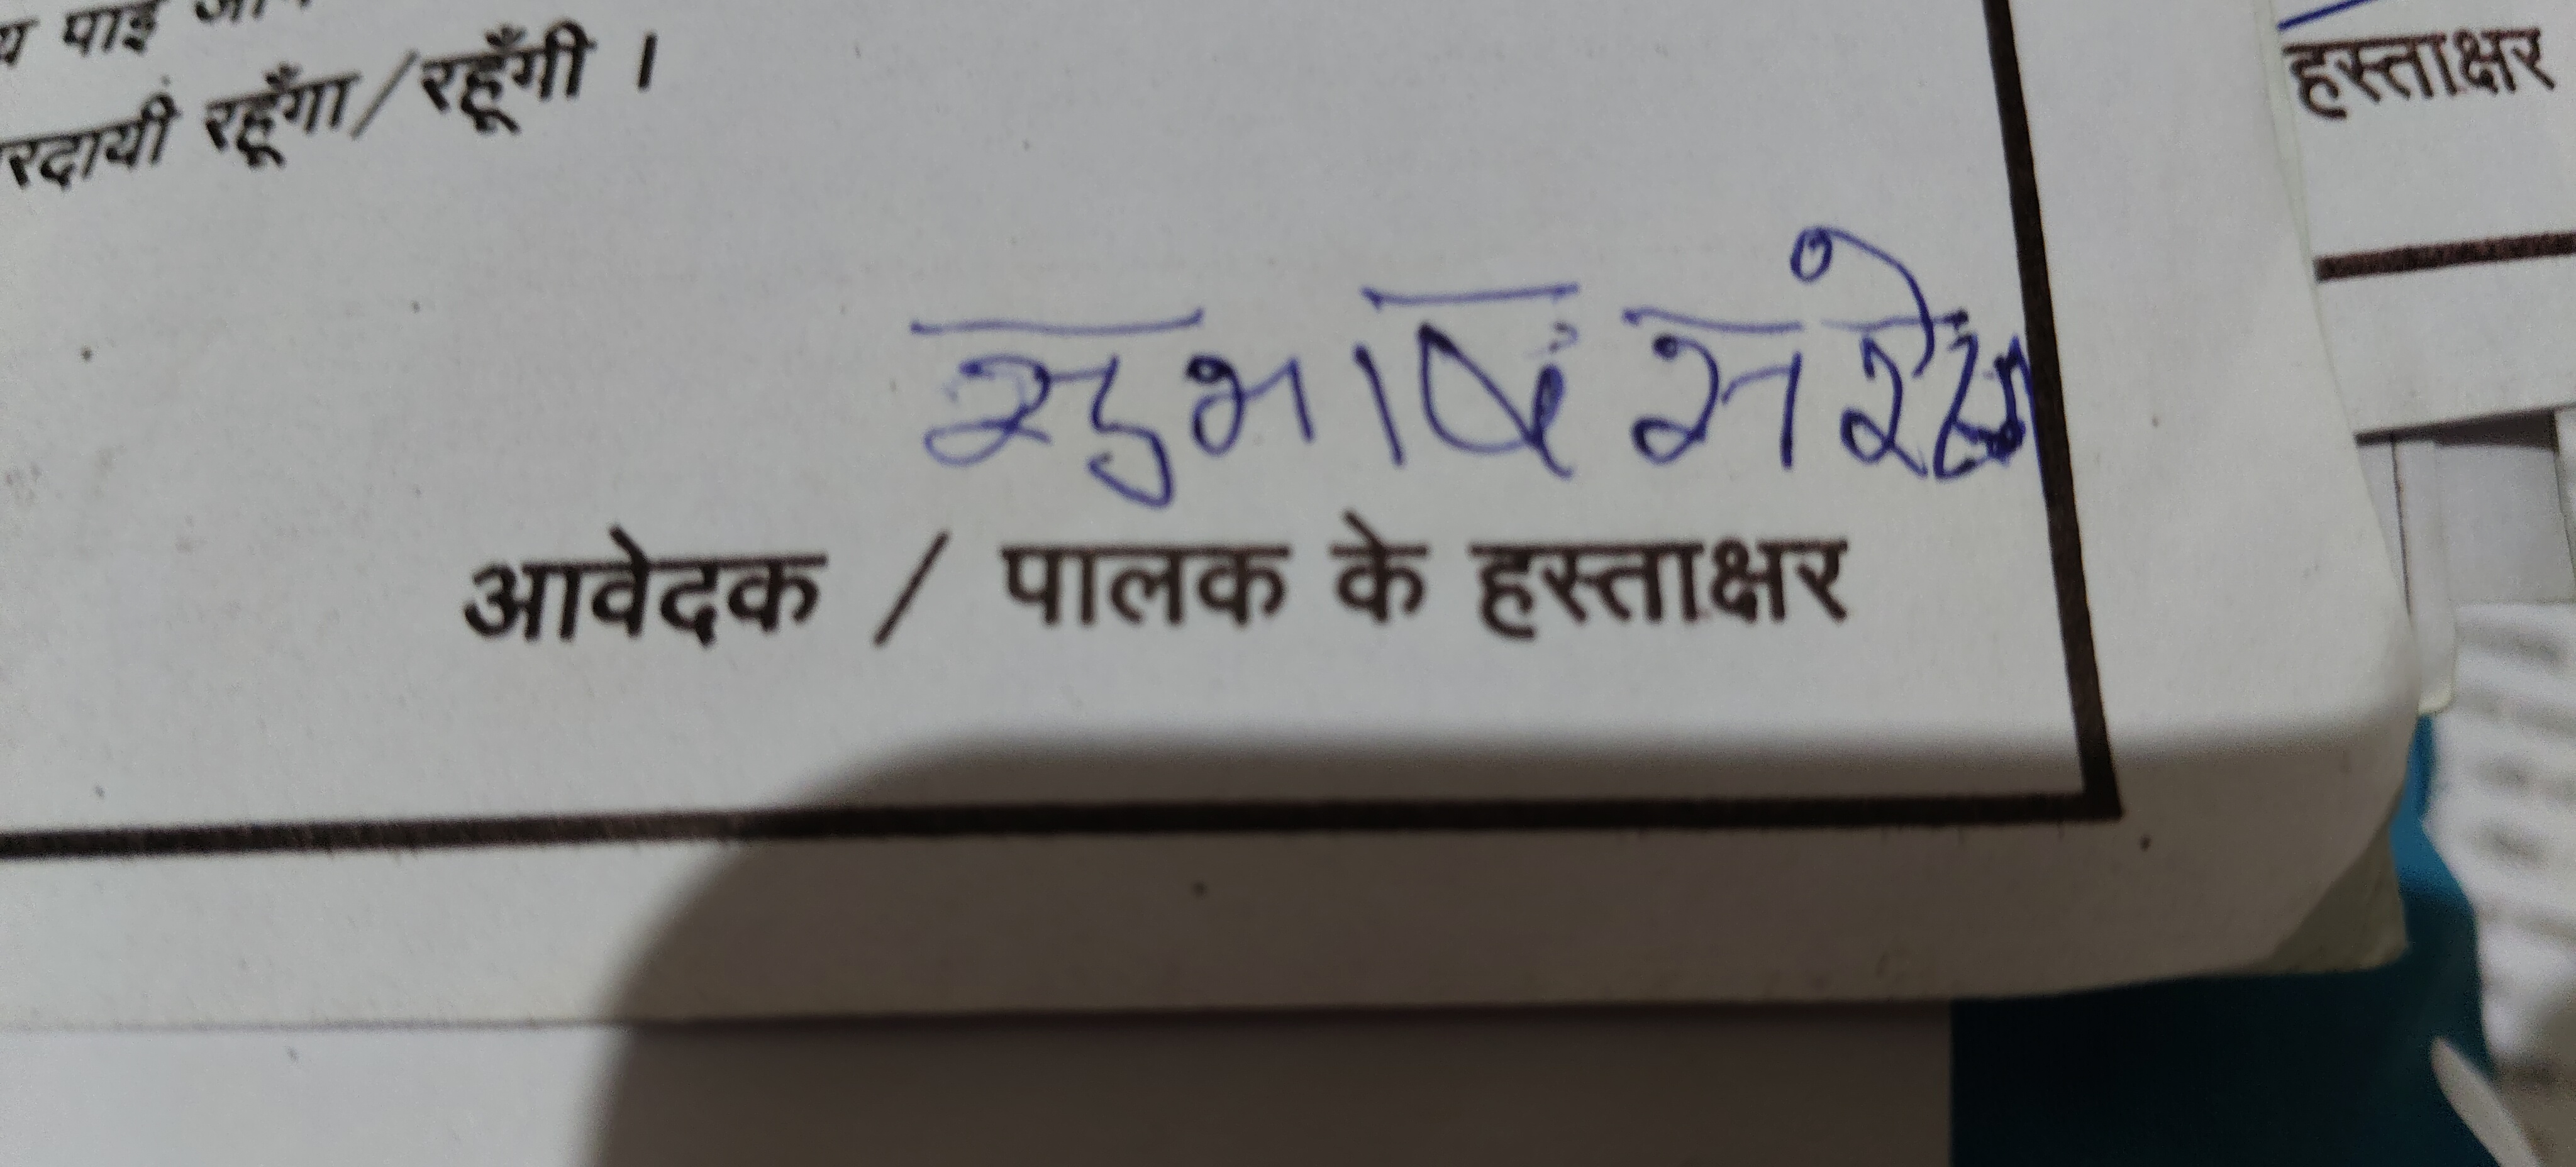 य पाई
रदायी रहूँगा/रहूँगी ।
सुभाष
आवेदक / पालक के हस्ताक्षर
हस्ताक्षर